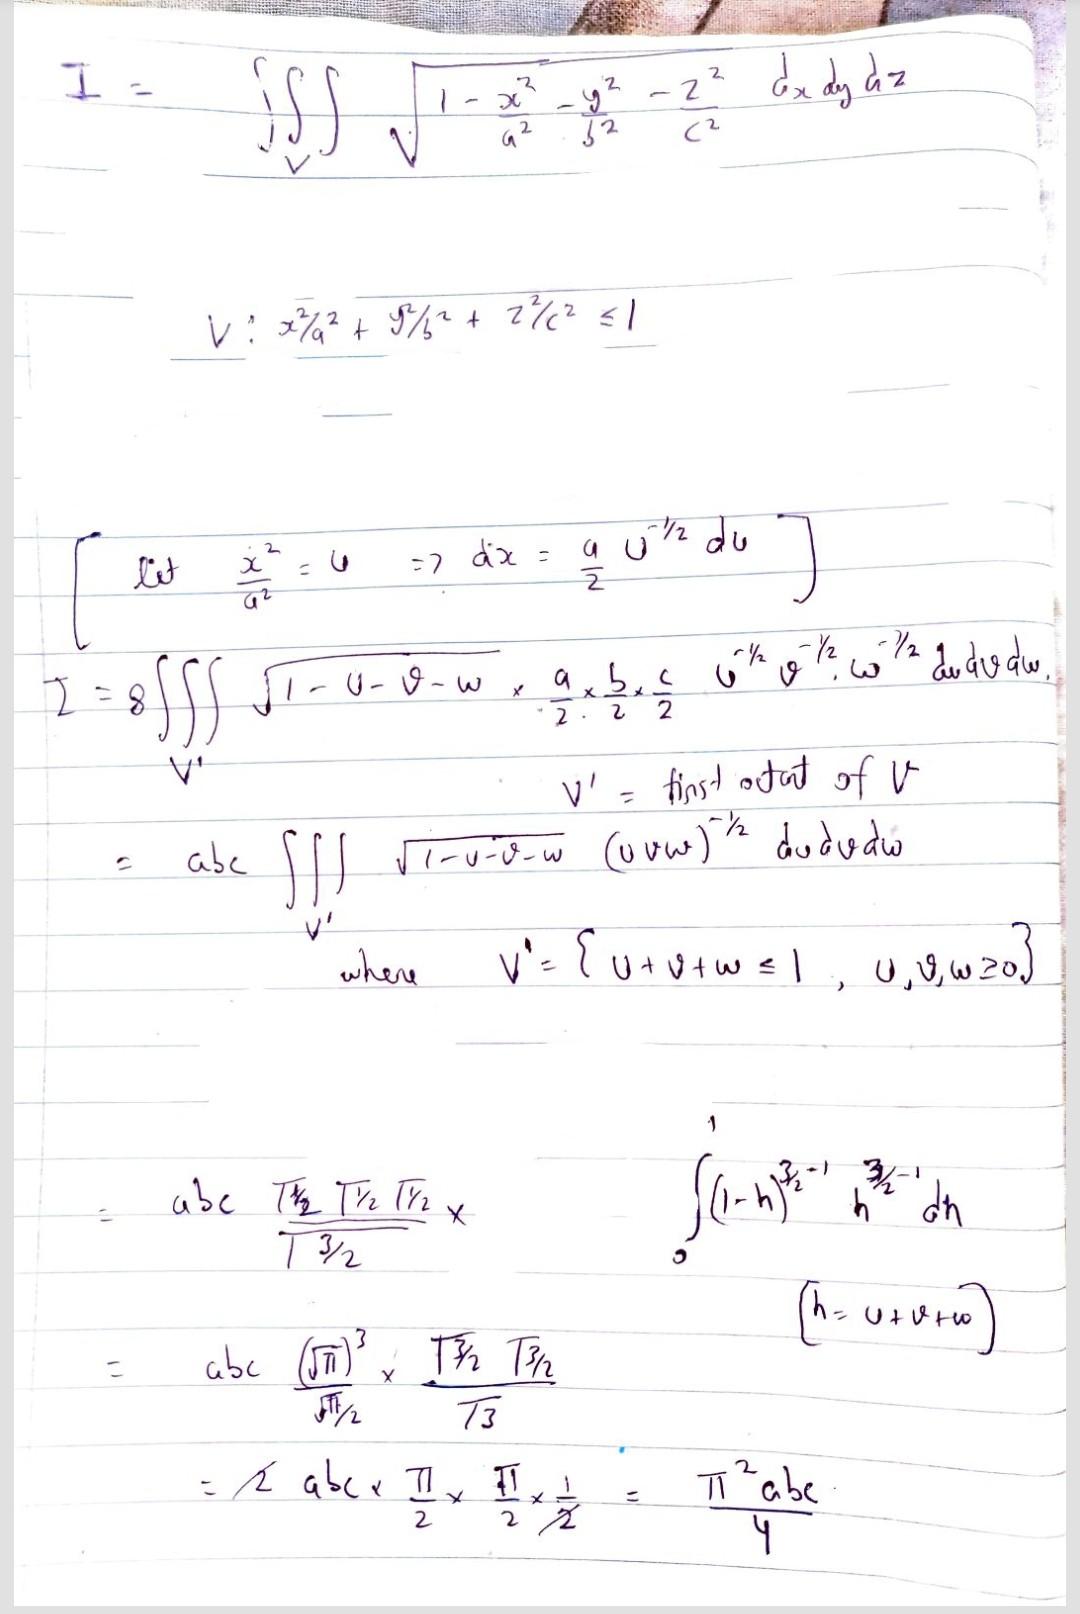 I = ∭_V √(1 - x²/a² - y²/b² - z²/c²) dx dy dz
V : x²/a² + y²/b² + z²/c² ≤ 1
[ let x²/a² = u => dx = a/2 u^(-1/2) du ]
I = 8 ∭_V' √(1-u-v-w) × a/2 × b/2 × c/2 u^(-1/2) v^(-1/2) . w^(-1/2) du dv dw.
V' = first octant of V
= abc ∭_V' √(1-u-v-w) (uvw)^(-1/2) du dv dw
where V' = { u+v+w ≤ 1 , u, v, w ≥ 0 }
= abc (Γ1/2 Γ1/2 Γ1/2)/(Γ3/2) × ∫₀¹ (1-h)^(3/2-1) h^(3/2-1) dh
(h = u+v+w)
= abc (√π)³/(√π/2) × (Γ3/2 Γ3/2)/(Γ3)
= 2 abc × π/2 × π/2 × 1/2 = π² abc/4